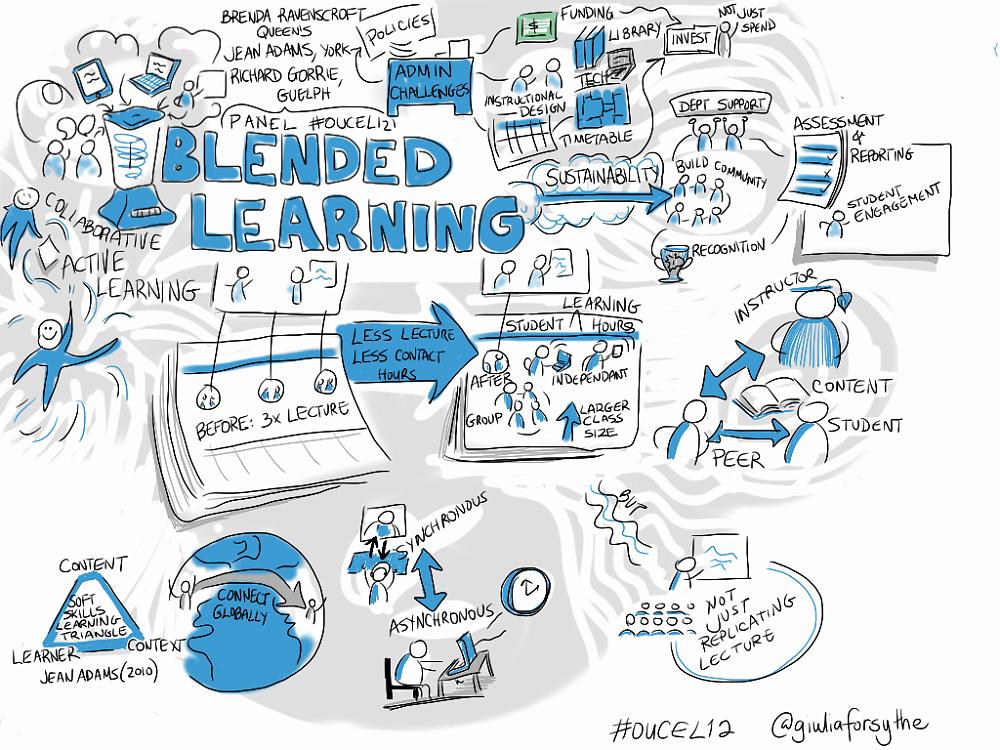 BRENDA RAVENSCROFT
QUEEN'S
JEAN ADAMS, YORK
RICHARD GORRIE,
GUELPH
PANEL #OUCEL121
BLENDED
LEARNING
POLICIES
ADMIN
CHALLENGES
$
FUNDING
LIBRARY
TECH
INSTRUCTIONAL
DESIGN
TIMETABLE
INVEST
NOT JUST
SPEND
DEPT SUPPORT
SUSTAINABILITY
BUILD COMMUNITY
RECOGNITION
ASSESSMENT
&
REPORTING
STUDENT
ENGAGEMENT
COLLABORATIVE
ACTIVE
LEARNING
BEFORE: 3x LECTURE
LESS LECTURE
LESS CONTACT
HOURS
LEARNING
STUDENT ^ HOURS
AFTER
INDEPENDANT
GROUP
LARGER
CLASS
SIZE
INSTRUCTOR
CONTENT
STUDENT
PEER
CONTENT
SOFT
SKILLS
LEARNING
TRIANGLE
LEARNER
CONTEXT
JEAN ADAMS (2010)
CONNECT
GLOBALLY
SYNCHRONOUS
ASYNCHRONOUS
BUT
NOT
JUST
REPLICATING
LECTURE
#OUCEL12 @giuliaforsythe